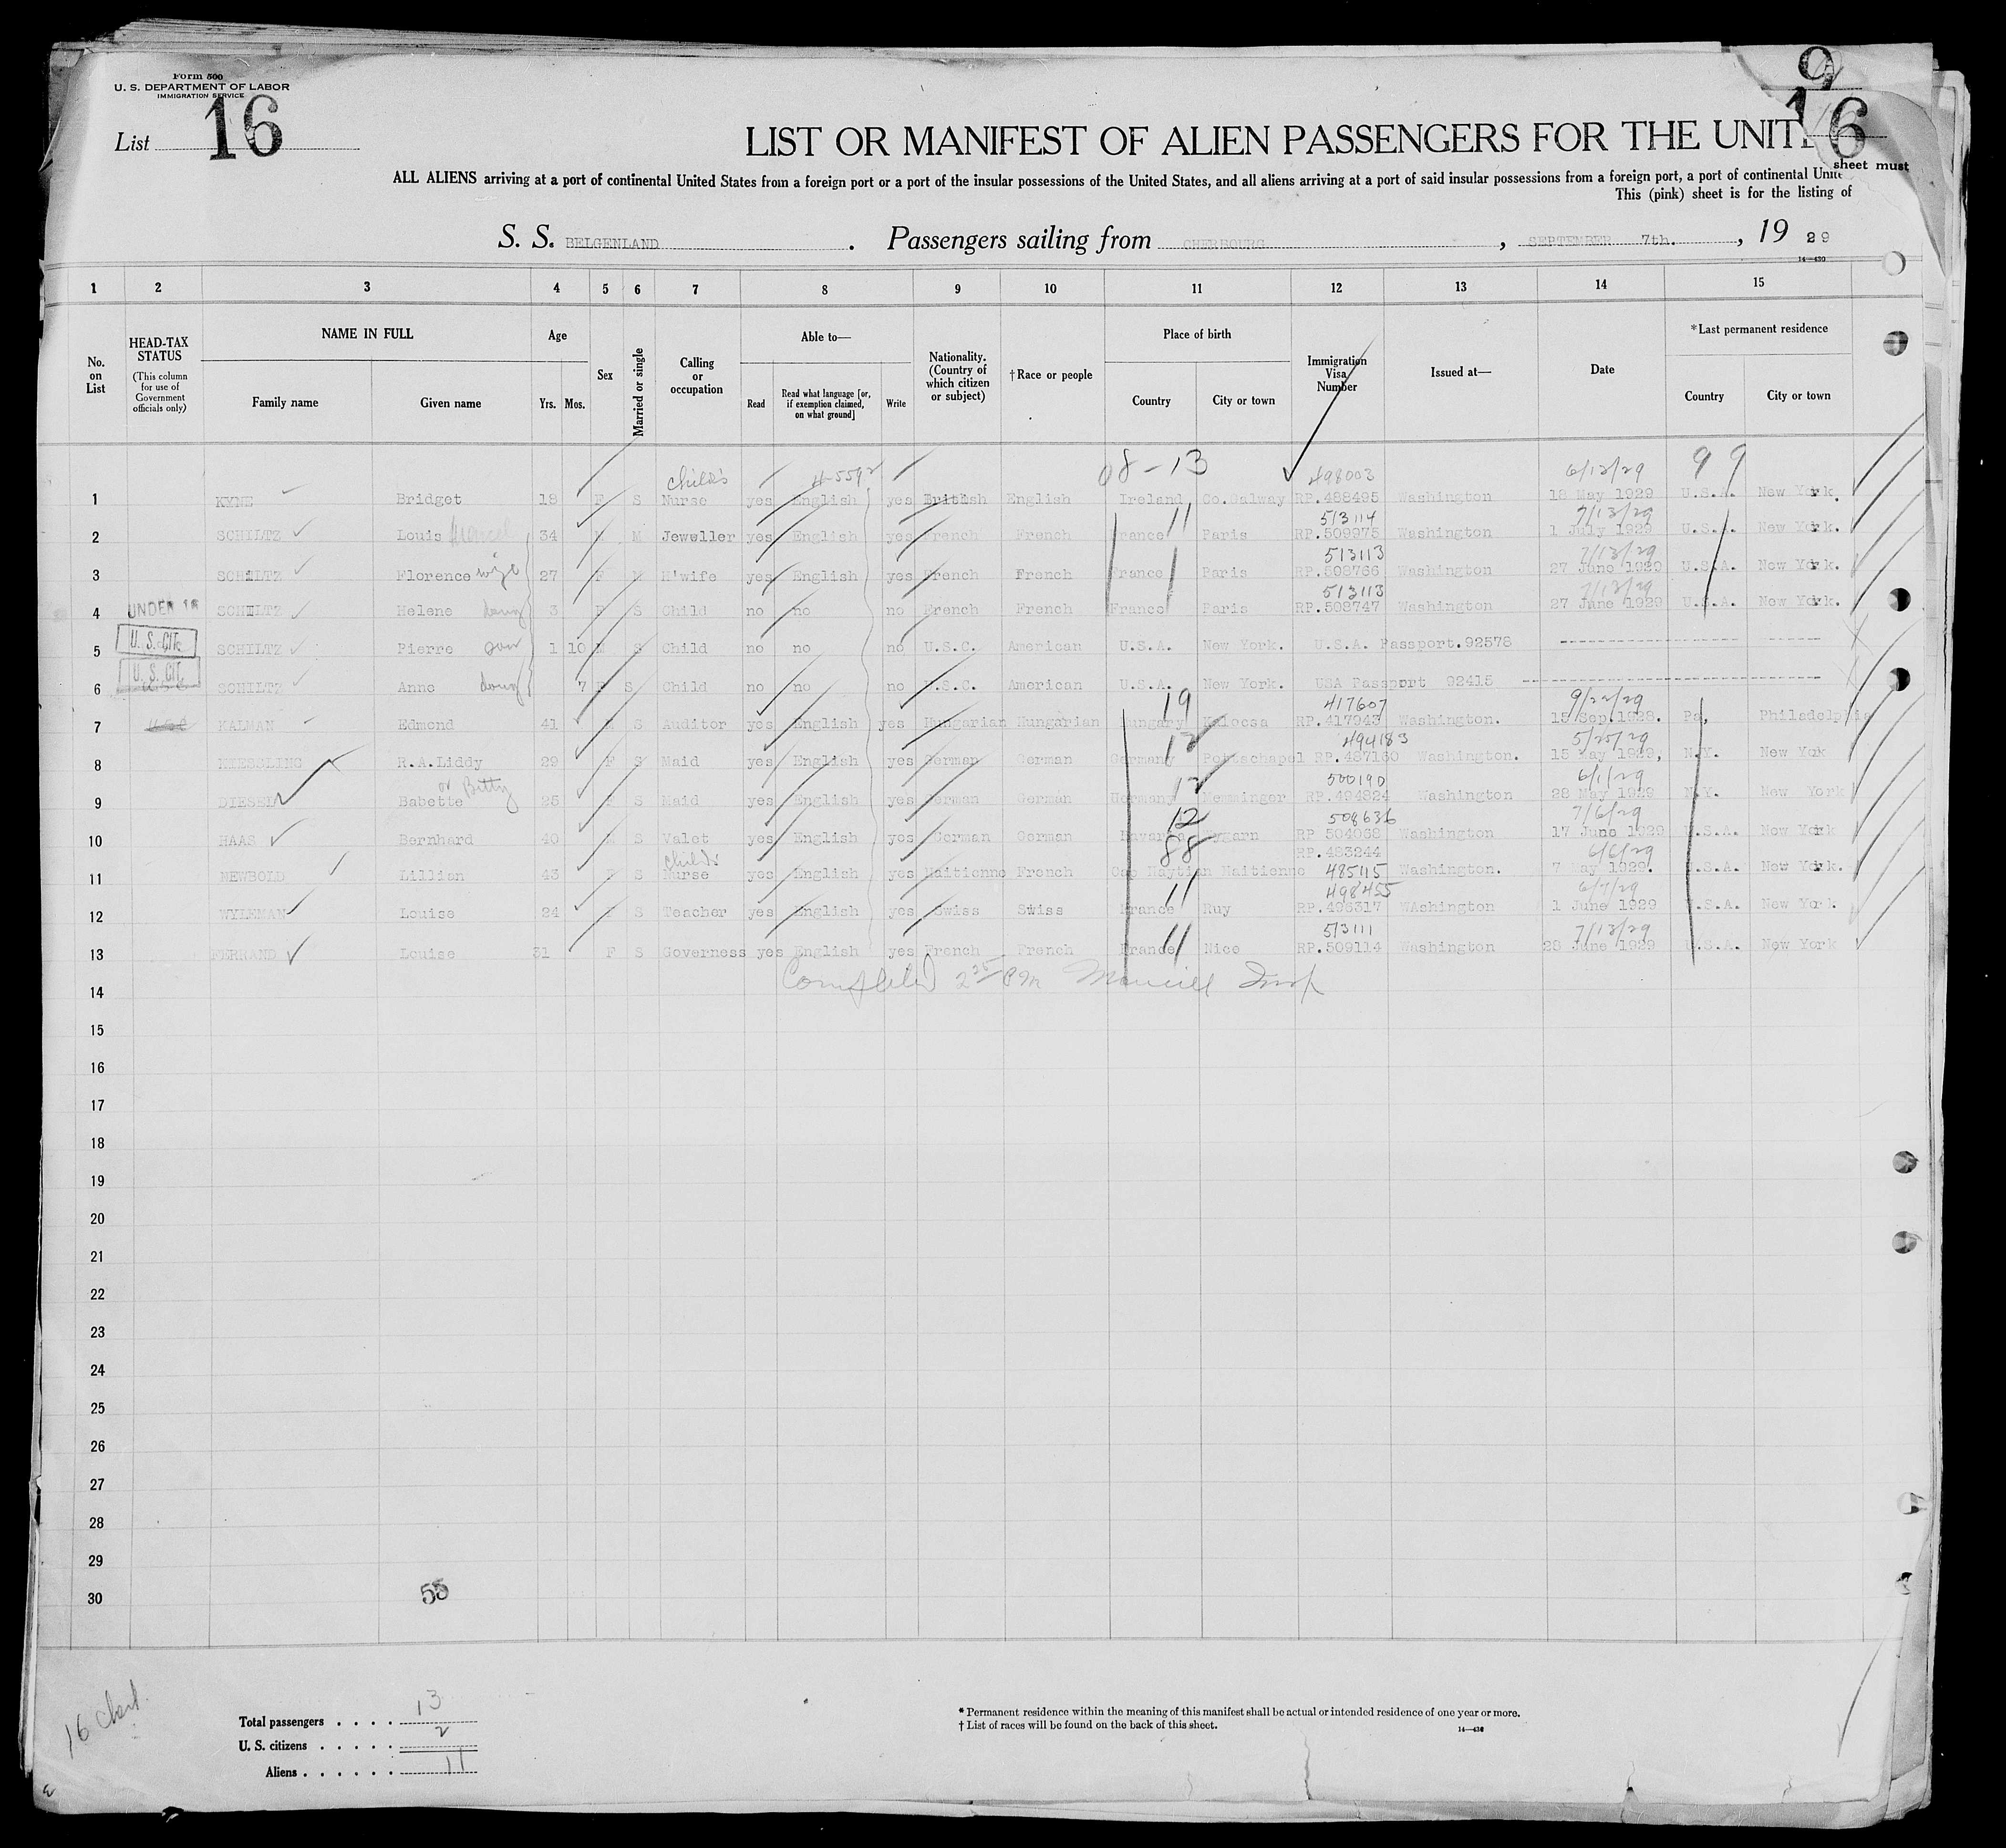 Form 500
U. S. DEPARTMENT OF LABOR
IMMIGRATION SERVICE
List 16
9
16
LIST OR MANIFEST OF ALIEN PASSENGERS FOR THE UNIT
sheet must
ALL ALIENS arriving at a port of continental United States from a foreign port or a port of the insular possessions of the United States, and all aliens arriving at a port of said insular possessions from a foreign port, a port of continental Unite
This (pink) sheet is for the listing of
S. S. BELGENLAND . Passengers sailing from CHERBOURG , SEPTEMBER 7th. , 19 29
14—430
1 2 3 4 5 6 7 8 9 10 11 12 13 14 15
No. on List
HEAD-TAX STATUS
(This column for use of Government officials only)
NAME IN FULL
Family name Given name
Age
Yrs. Mos.
Sex
Married or single
Calling or occupation
Able to—
Read
Read what language [or, if exemption claimed, on what ground]
Write
Nationality. (Country of which citizen or subject)
†Race or people
Place of birth
Country City or town
Immigration Visa Number
Issued at—
Date
*Last permanent residence
Country City or town
child's 08-13 498003 6/12/29 99
1 KYNE Bridget 18 F S Nurse yes English yes British English Ireland Co.Galway RP.488495 Washington 18 May 1929 U.S.A. New York.
11 513114 7/13/29
2 SCHILTZ Louis Marcel 34 M M Jeweller yes English yes French French France Paris RP.509975 Washington 1 July 1929 U.S.A. New York.
513113 7/13/29
3 SCHILTZ Florence wife 27 F M H'wife yes English yes French French France Paris RP.508766 Washington 27 June 1929 U.S.A. New York.
513113 7/13/29
4 UNDER 16 SCHILTZ Helene daug 3 F S Child no no no French French France Paris RP.508747 Washington 27 June 1929 U.S.A. New York.
5 U. S. CIT. SCHILTZ Pierre son 1 10 M S Child no no no U.S.C. American U.S.A. New York. U.S.A. Passport.92578
6 U. S. CIT. SCHILTZ Anne daug 7 F S Child no no no U.S.C. American U.S.A. New York. USA Passport 92415
19 417607 9/22/29
7 KALMAN Edmond 41 M S Auditor yes English yes Hungarian Hungarian Hungary Kalocsa RP.417943 Washington. 15 Sep.1928. Pa, Philadelphia
12 494183 5/25/29
8 R.A.Liddy 29 F S Maid yes English yes German German Germany Pottschapel RP.487160 Washington. 15 May 1929, N.Y. New York
or Betty 12 500190 6/1/29
9 DIESEL Babette 25 F S Maid yes English yes German German Germany Memminger RP.494824 Washington 28 May 1929 N.Y. New York
12 508636 7/6/29
10 HAAS Bernhard 40 M S Valet yes English yes German German Bavaria RP 504068 Washington 17 June 1929 U.S.A. New York
childs 88 RP.483244 6/6/29
11 NEWBOLD Lillian 43 F S Nurse yes English yes Haitienne French Cap Haytian Haitienne 485115 Washington. 7 May 1929. U.S.A. New York.
11 498455 6/7/29
12 WYLEMAN Louise 24 F S Teacher yes English yes Swiss Swiss France Ruy RP.496317 WAshington 1 June 1929 U.S.A. New York
11 513111 7/13/29
13 FERRAND Louise 31 F S Governess yes English yes French French France Nice RP.509114 Washington 28 June 1929 U.S.A. New York
14 Completed 2 35 PM Insp
15
16
17
18
19
20
21
22
23
24
25
26
27
28
29
30
55
16 Cherb.
Total passengers . . . . 13
U. S. citizens . . . . . 2
Aliens . . . . . . 11
* Permanent residence within the meaning of this manifest shall be actual or intended residence of one year or more.
† List of races will be found on the back of this sheet.
14—430